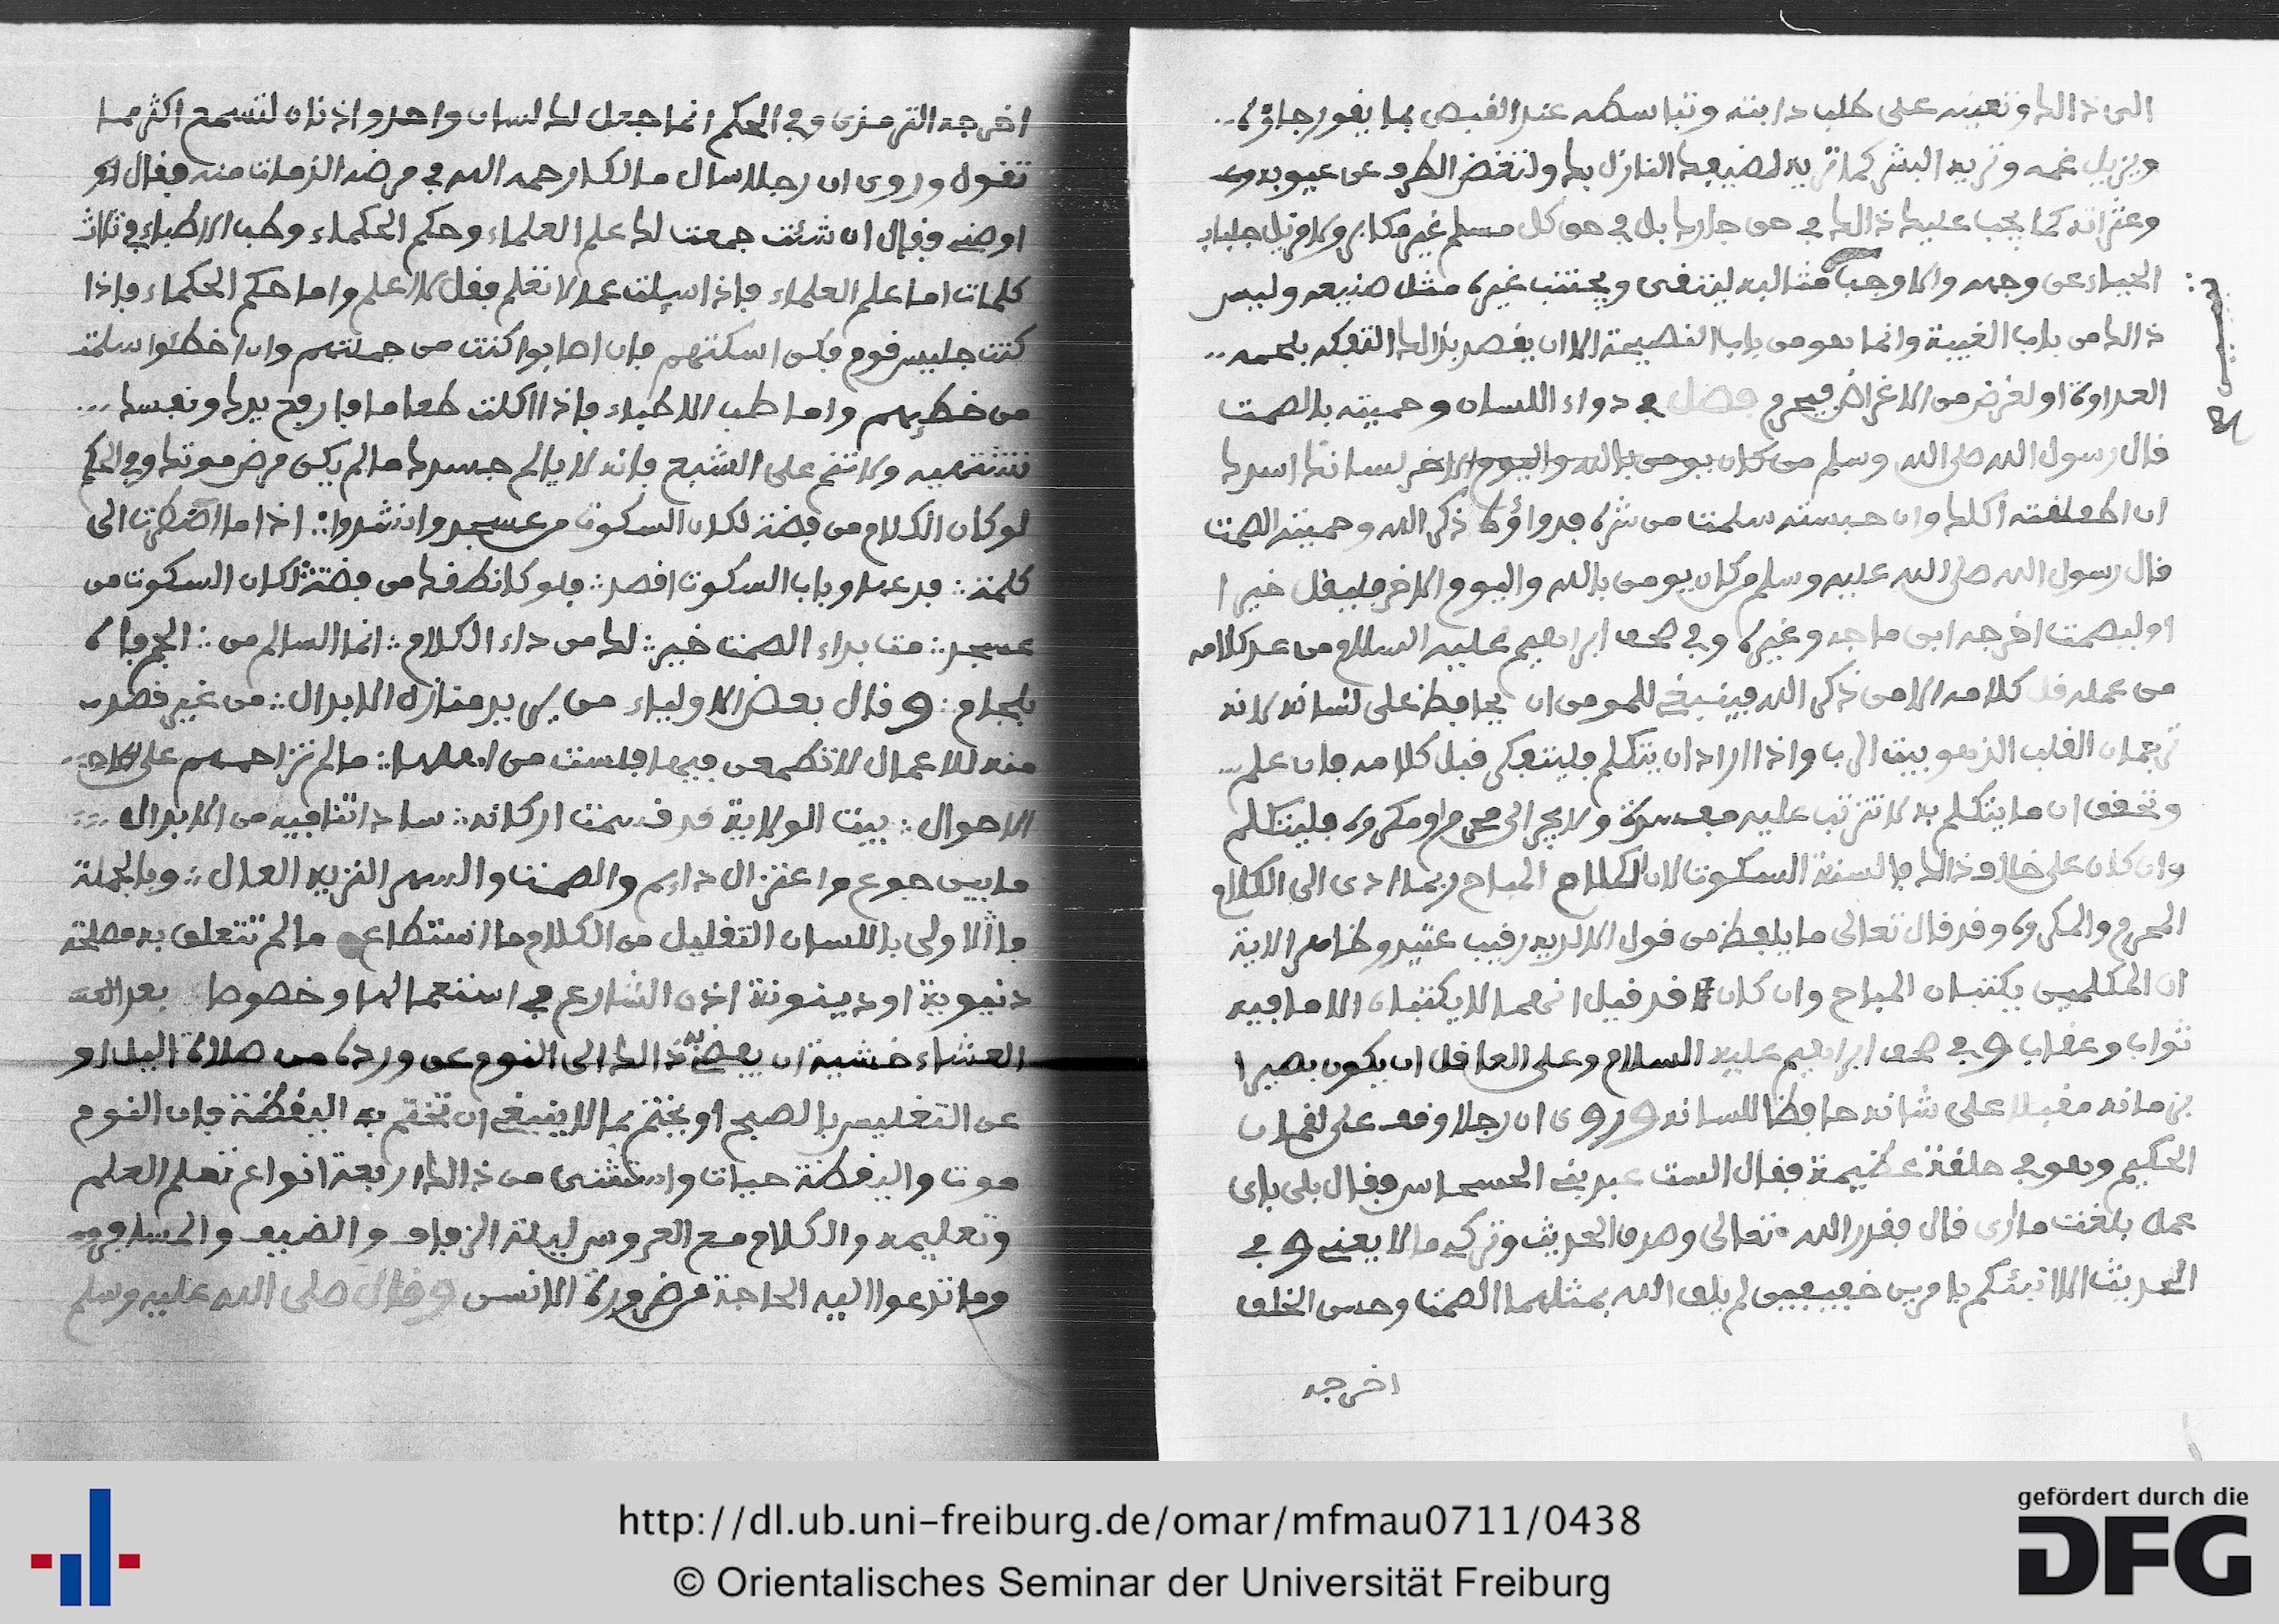 الى ذالك وتعينه على طلب دابته وتباسطه عند القبض بما يقور جاؤه
ويزيل غمه وتريه البشر كما تريه لضيفك النازل بك ولتغض الطرف عن عيوبه
وعثراته كما يجب عليك ذالك في حق جارك بل في حق كل مسلم غير مكابر ولا مزيل جلباب
الحياء عن وجهه والا وجب مثالبه ليتقى ويجتنب غيره مثل صنيعه وليس
ذالك من باب الغيبة وانما هو من باب النصيحة الا ان يقصد بذالك التفكه بلحمه
العداوة او لغرض من الاغراض فيحرم فصل في دواء اللسان وحميته بالصمت
قال رسول الله صلى الله وسلم من كان يومن بالله واليوم الاخر لسانك اسدك
ان اطلقته اكلك وان حبسته سلمت من شره فدواؤه ذكر الله وحميته الصمت
قال رسول الله صلى الله عليه وسلم من كان يومن بالله واليوم الاخر فليقل خيرا
او ليصمت اخرجه ابن ماجه وغيره وفي صحف ابراهيم عليه السلام من عد كلامه
من عمله قل كلامه الا من ذكر الله فينبغي للمومن ان يحافظ على لسانه لانه
ترجمان القلب الذي هو بيت الرب واذا اراد ان يتكلم فليتفكر قبل كلامه فان علم
وتحقق ان ما يتكلم به لا تترتب عليه مفسدة ولا يجر الى محرم او مكروه فليتكلم
وان كان على خلاف ذالك فالسنة السكوت لان الكلام المباح ربما ادى الى الكلام
المحرم والمكروه وقد قال تعالى ما يلفظ من قول الا لديه رقيب عتيد وظاهر الاية
ان الملكين يكتبان المباح وان كان قد قيل انهما لا يكتبان الا ما فيه
ثواب وعقاب وفي صحف ابراهيم عليه السلام وعلى العاقل ان يكون بصيرا
بزمانه مقبلا على شانه حافظا للسانه وروى ان رجلا وقف على لقمان
الحكيم وهو في حلقة عظيمة فقال الست عبد بني الحسحاس فقال بلى باي
عمل بلغت ما ارى قال بقدر الله تعالى وصدق الحديث وترك ما لا يعني وفي
الحديث الا انبئكم بامرين خفيفين لم يلق الله بمثلهما الصمت وحسن الخلق
اخرجه
اخرجه الترمذى وفي الحكم انما جعل لك لسان واحد واذنان لتسمع اكثر مما
تقول وروى ان رجلا سال مالكا رحمه الله في مرضه الذي مات منه فقال له
اوصني فقال ان شئت جمعت لك علم العلماء وحكم الحكماء وطب الاطباء في ثلاث
كلمات اما علم العلماء فاذا سيلت عما لا تعلم فقل لا اعلم واما حكم الحكماء فاذا
كنت جليس قوم فكن اسكتهم فان اصابوا كنت من جملتهم وان اخطئوا سلمت
من خطئهم واما طب الاطباء فاذا اكلت طعاما فارفع يدك ونفسك
تشتهيه ولا تنم على الشبع فانه لا يالم جسدك ما لم يكن مرض موتك وفي الحكم
لو كان الكلام من فضة لكان السكوت من عسجد وانشدوا ∴ اذا ما اضطررت الى
كلمة ∴ فدعها وباب السكوت اقصد ∴ فلو كان نطقك من فضة لكان السكوت من
عسجد ∴ مت بداء الصمت خير ∴ لك من داء الكلام ∴ انما السالم من ∴ الجم فاه
بلجام ∴ وقال بعض الاولياء من يريد منازل الابدال ∴ من غير قصد
منه للاعمال لا تطمعن فيها فلست من اهلها ∴ ما لم تزاحمهم على
الاحوال ∴ بيت الولاية قد قسمت اركانه ∴ ساداتنا فيه من الابدال
ما بين جوع واعتزال دايم والصمت والسهر النزيه العال ∴ وبالجملة
فالاولى باللسان التقليل من الكلام ما استطاع ما لم تتعلق به مصلحة
دنيوية او دينونة اذن الشارع في استعمالها وخصوصا بعد
العشاء خشية ان يفضي به ذالك الى النوم عن ورده من صلاة اليل او
عن التغليس بالصبح او يختم بما لا ينبغي ان تختم به اليقظة فان النوم
موت واليقظة حيات واستثنى من ذالك اربعة انواع تعلم العلم
وتعليمه والكلام مع العروس ليلة الزفاف والضيف والمسافر
وما تدعوا اليه الحاجة من ضرورة الانس وقال صلى الله عليه وسلم
http://dl.ub.uni-freiburg.de/omar/mfmau0711/0438
© Orientalisches Seminar der Universität Freiburg
gefördert durch die
DFG